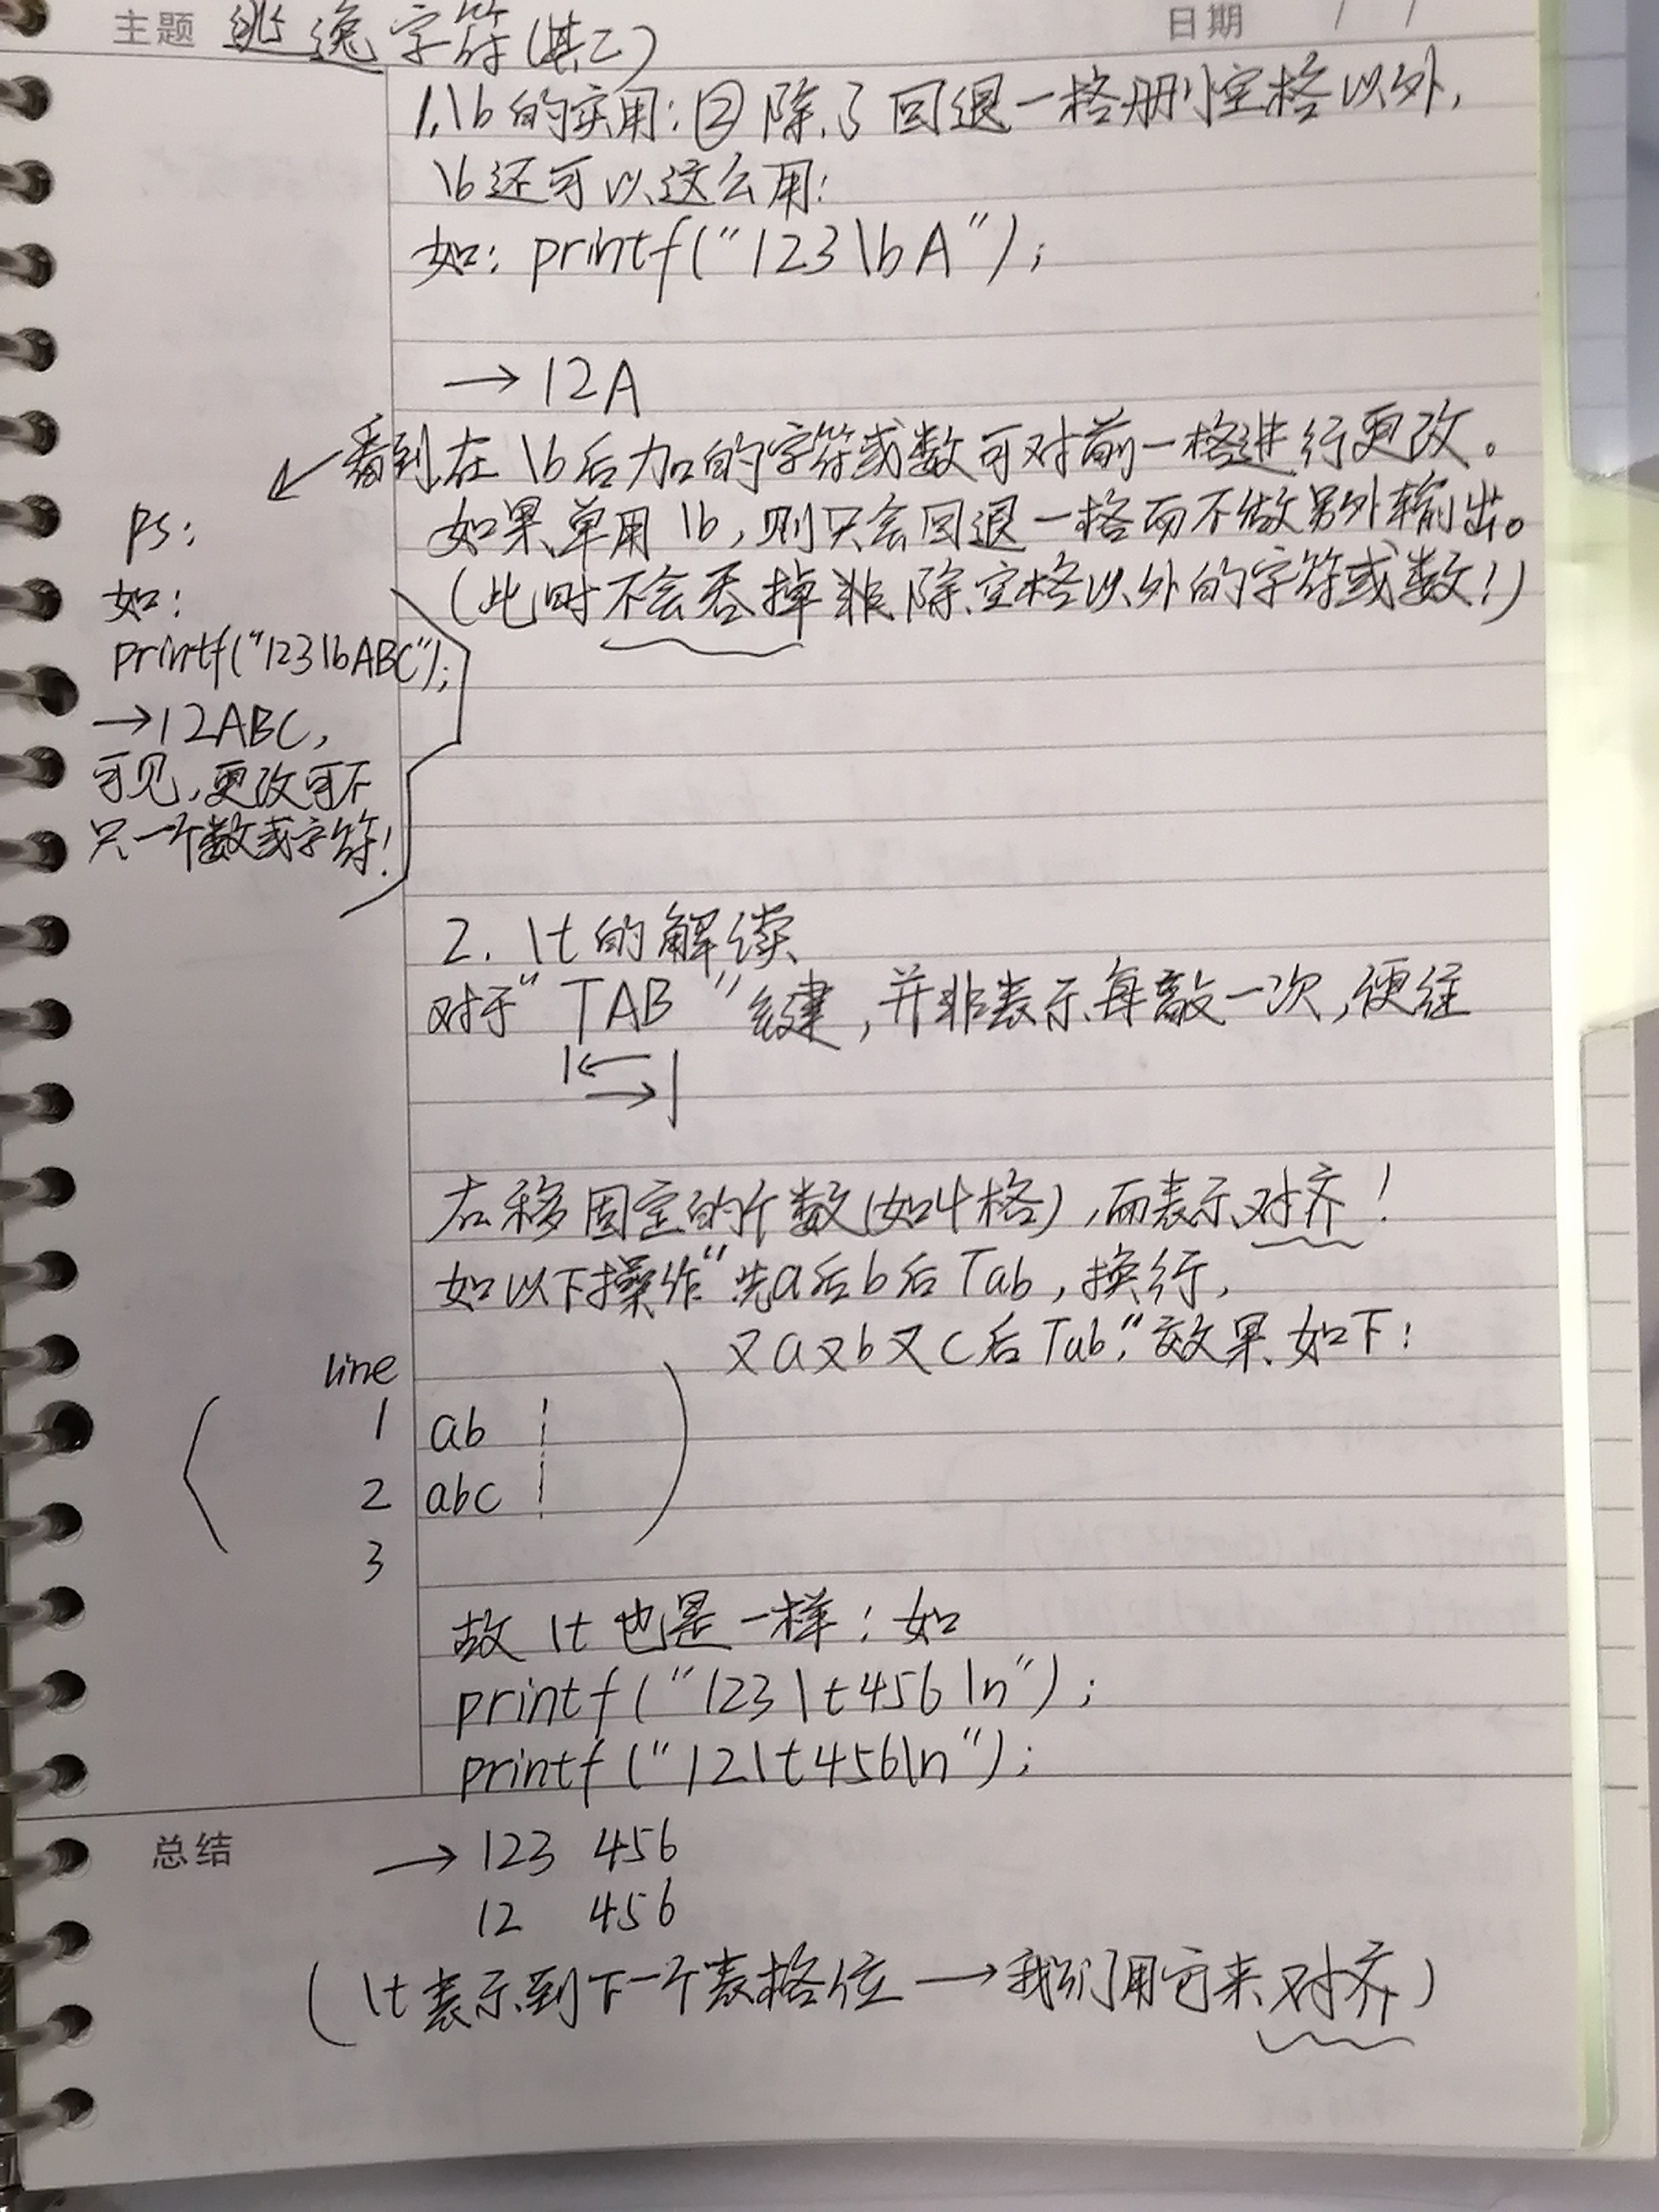 主题 逃逸字符(其二)
日期 / /
1.\b的实用:②除了回退一格删空格以外,
\b还可以这么用:
如: printf("123\bA");
→12A
看到在\b后加的字符或数可对前一格进行更改。
如果单用\b,则只会回退一格而不做另外输出。
(此时不会吞掉非除空格以外的字符或数!)
ps:
如:
printf("123\bABC");
→12ABC,
可见,更改可不
只一个数或字符!
2. \t的解读
对于"TAB"键,并非表示每敲一次,便往
右移固定的个数(如4格),而表示对齐!
如以下操作"先a后b后Tab,换行,
又a又b又c后Tab,"效果如下:
line
1 ab
2 abc
3
故\t也是一样:如
printf("123\t456\n");
printf("12\t456\n");
总结
→123 456
12 456
(\t表示到下一个表格位→我们用它来对齐)